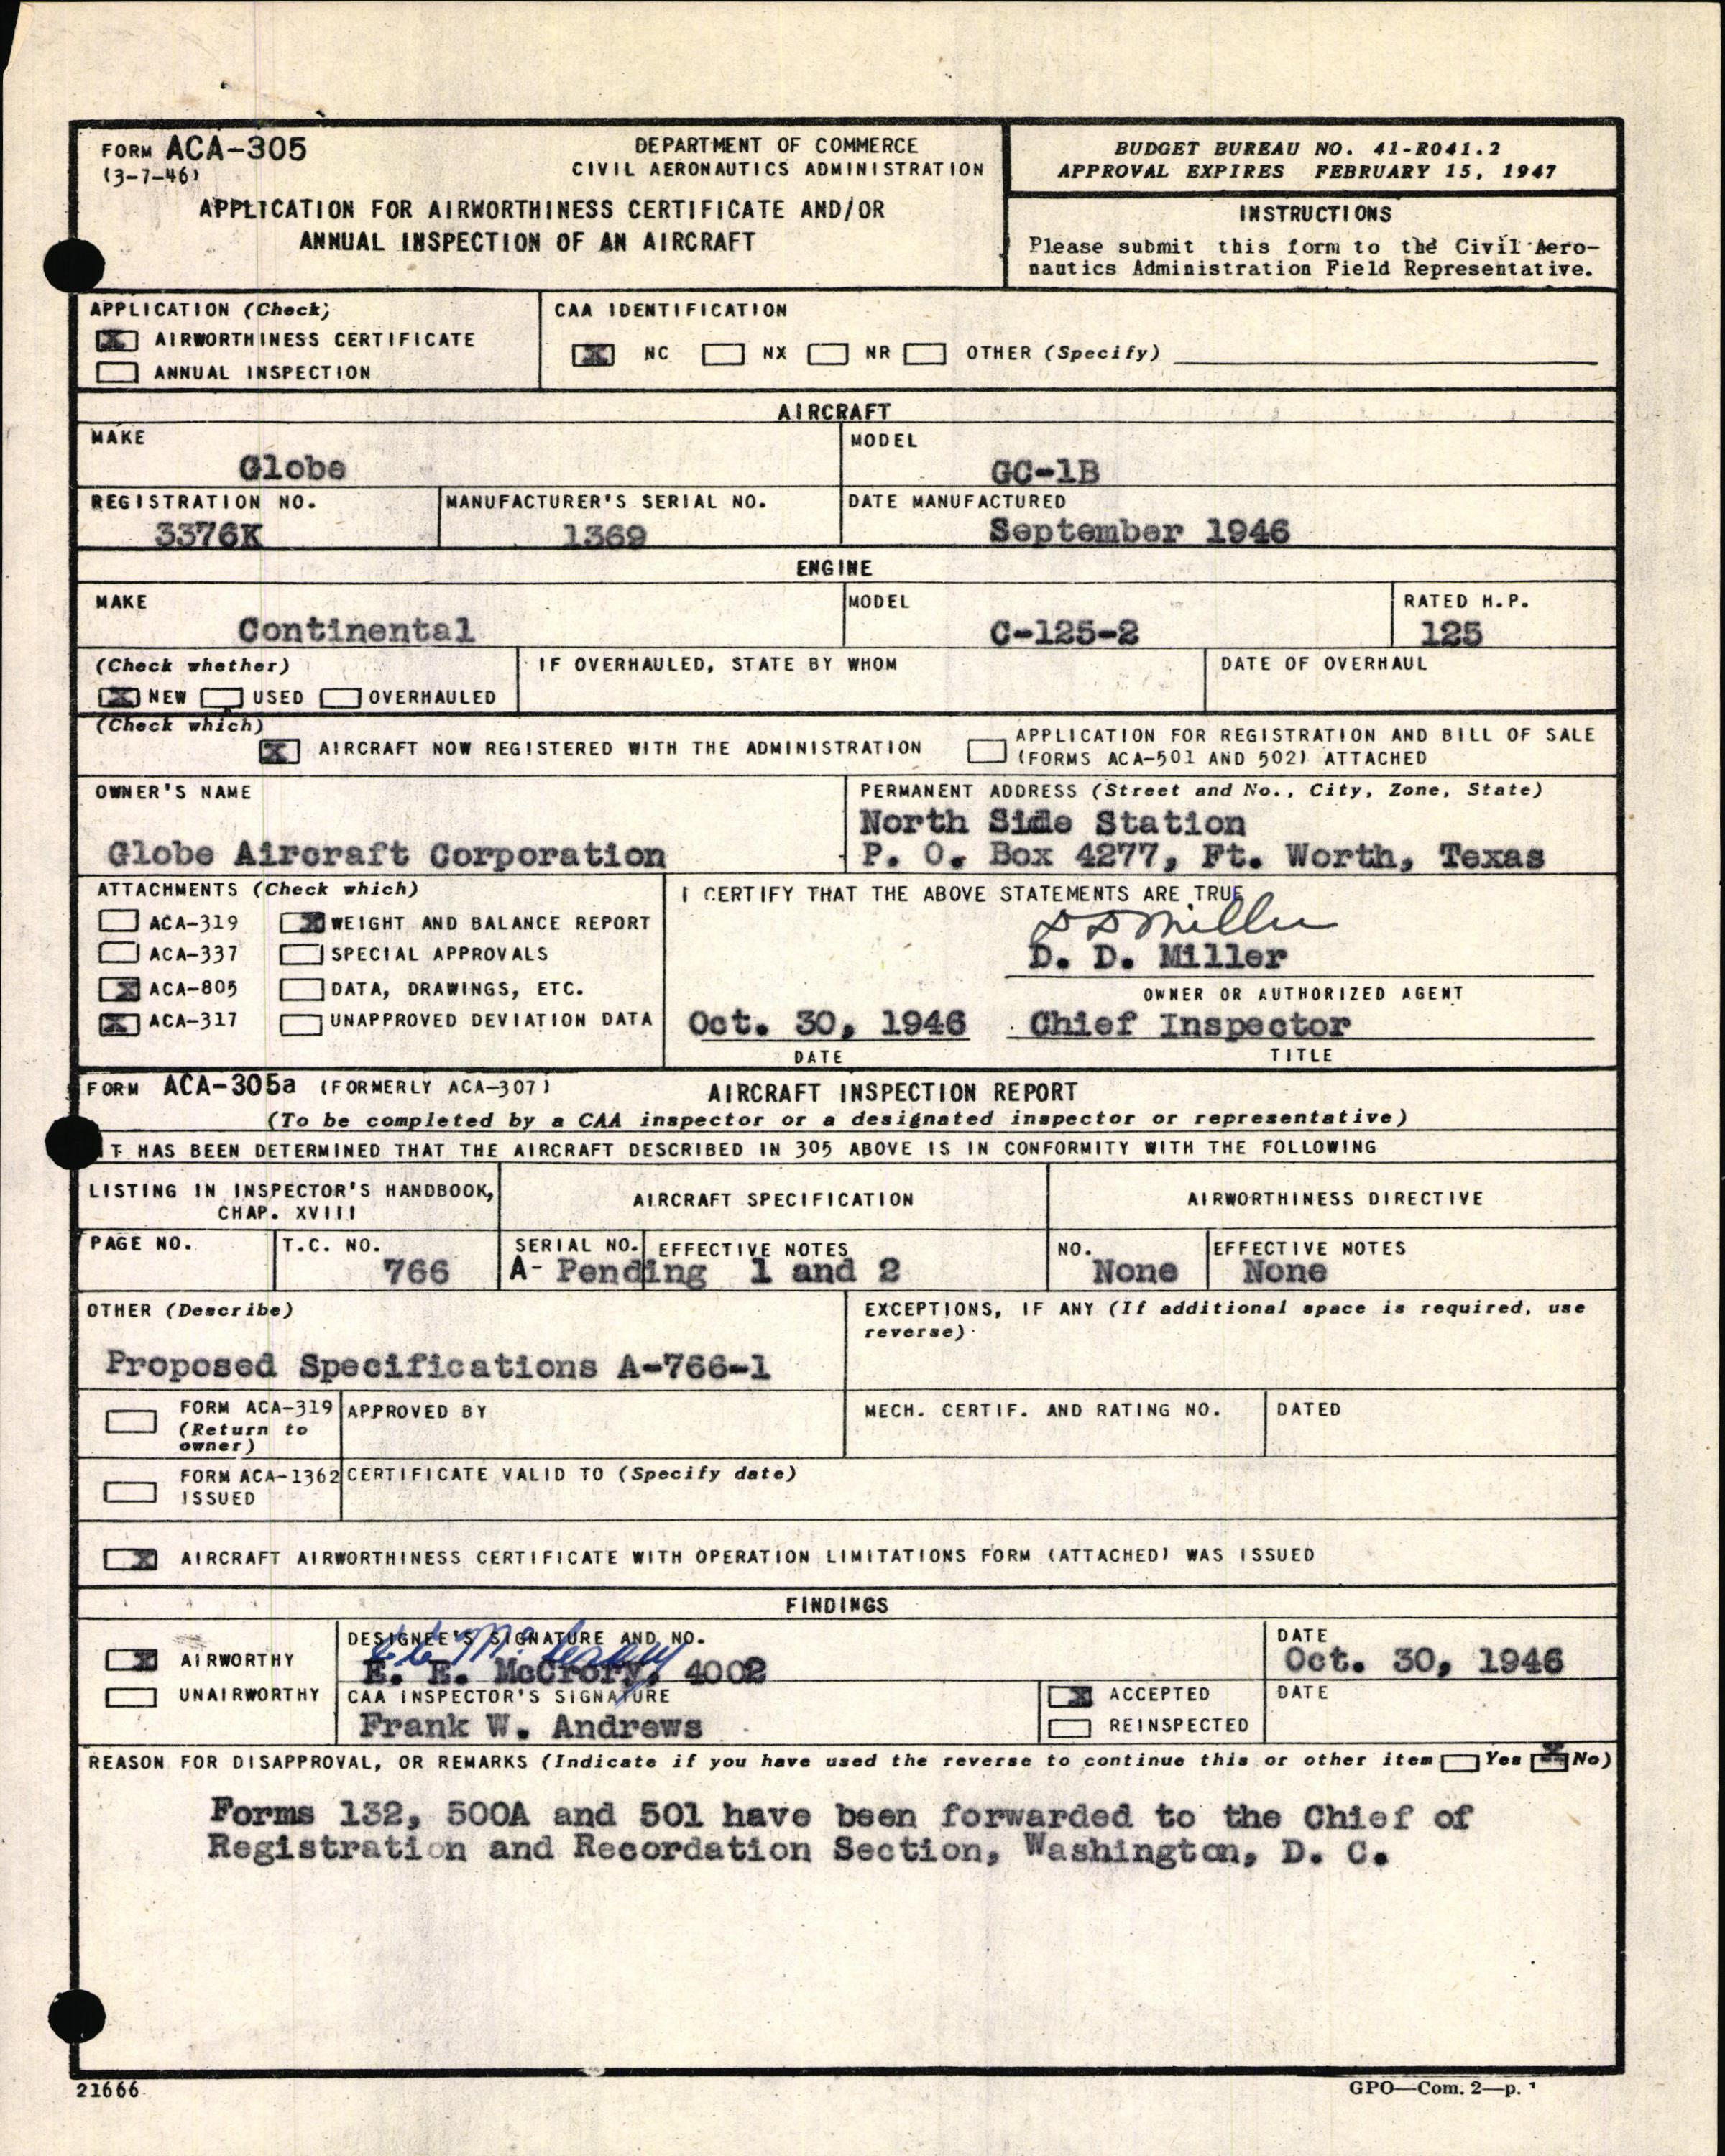 FORM ACA-305
(3-7-46)
DEPARTMENT OF COMMERCE
CIVIL AERONAUTICS ADMINISTRATION
APPLICATION FOR AIRWORTHINESS CERTIFICATE AND/OR
ANNUAL INSPECTION OF AN AIRCRAFT
BUDGET BUREAU NO. 41-R041.2
APPROVAL EXPIRES FEBRUARY 15, 1947
INSTRUCTIONS
Please submit this form to the Civil Aero-
nautics Administration Field Representative.
APPLICATION (Check)
X AIRWORTHINESS CERTIFICATE
ANNUAL INSPECTION
CAA IDENTIFICATION
X NC NX NR OTHER (Specify)
AIRCRAFT
MAKE
Globe
MODEL
GC-1B
REGISTRATION NO.
3376K
MANUFACTURER'S SERIAL NO.
1369
DATE MANUFACTURED
September 1946
ENGINE
MAKE
Continental
MODEL
C-125-2
RATED H.P.
125
(Check whether)
X NEW USED OVERHAULED
IF OVERHAULED, STATE BY WHOM
DATE OF OVERHAUL
(Check which)
X AIRCRAFT NOW REGISTERED WITH THE ADMINISTRATION
APPLICATION FOR REGISTRATION AND BILL OF SALE
(FORMS ACA-501 AND 502) ATTACHED
OWNER'S NAME
Globe Aircraft Corporation
PERMANENT ADDRESS (Street and No., City, Zone, State)
North Side Station
P. O. Box 4277, Ft. Worth, Texas
ATTACHMENTS (Check which)
ACA-319 X WEIGHT AND BALANCE REPORT
ACA-337 SPECIAL APPROVALS
X ACA-805 DATA, DRAWINGS, ETC.
X ACA-317 UNAPPROVED DEVIATION DATA
I CERTIFY THAT THE ABOVE STATEMENTS ARE TRUE
D D Miller
D. D. Miller
OWNER OR AUTHORIZED AGENT
Oct. 30, 1946 Chief Inspector
DATE TITLE
FORM ACA-305a (FORMERLY ACA-307) AIRCRAFT INSPECTION REPORT
(To be completed by a CAA inspector or a designated inspector or representative)
IT HAS BEEN DETERMINED THAT THE AIRCRAFT DESCRIBED IN 305 ABOVE IS IN CONFORMITY WITH THE FOLLOWING
LISTING IN INSPECTOR'S HANDBOOK,
CHAP. XVIII
AIRCRAFT SPECIFICATION
AIRWORTHINESS DIRECTIVE
PAGE NO.
T.C. NO.
766
SERIAL NO. EFFECTIVE NOTES
A- Pending 1 and 2
NO.
None
EFFECTIVE NOTES
None
OTHER (Describe)
Proposed Specifications A-766-1
EXCEPTIONS, IF ANY (If additional space is required, use
reverse)
FORM ACA-319
(Return to
owner)
APPROVED BY
MECH. CERTIF. AND RATING NO.
DATED
FORM ACA-1362
ISSUED
CERTIFICATE VALID TO (Specify date)
X AIRCRAFT AIRWORTHINESS CERTIFICATE WITH OPERATION LIMITATIONS FORM (ATTACHED) WAS ISSUED
FINDINGS
X AIRWORTHY
UNAIRWORTHY
DESIGNEE'S SIGNATURE AND NO.
E E McCrory
E. E. McCrory, 4002
DATE
Oct. 30, 1946
CAA INSPECTOR'S SIGNATURE
Frank W. Andrews
X ACCEPTED
REINSPECTED
DATE
REASON FOR DISAPPROVAL, OR REMARKS (Indicate if you have used the reverse to continue this or other item Yes X No)
Forms 132, 500A and 501 have been forwarded to the Chief of
Registration and Recordation Section, Washington, D. C.
21666
GPO—Com. 2—p.